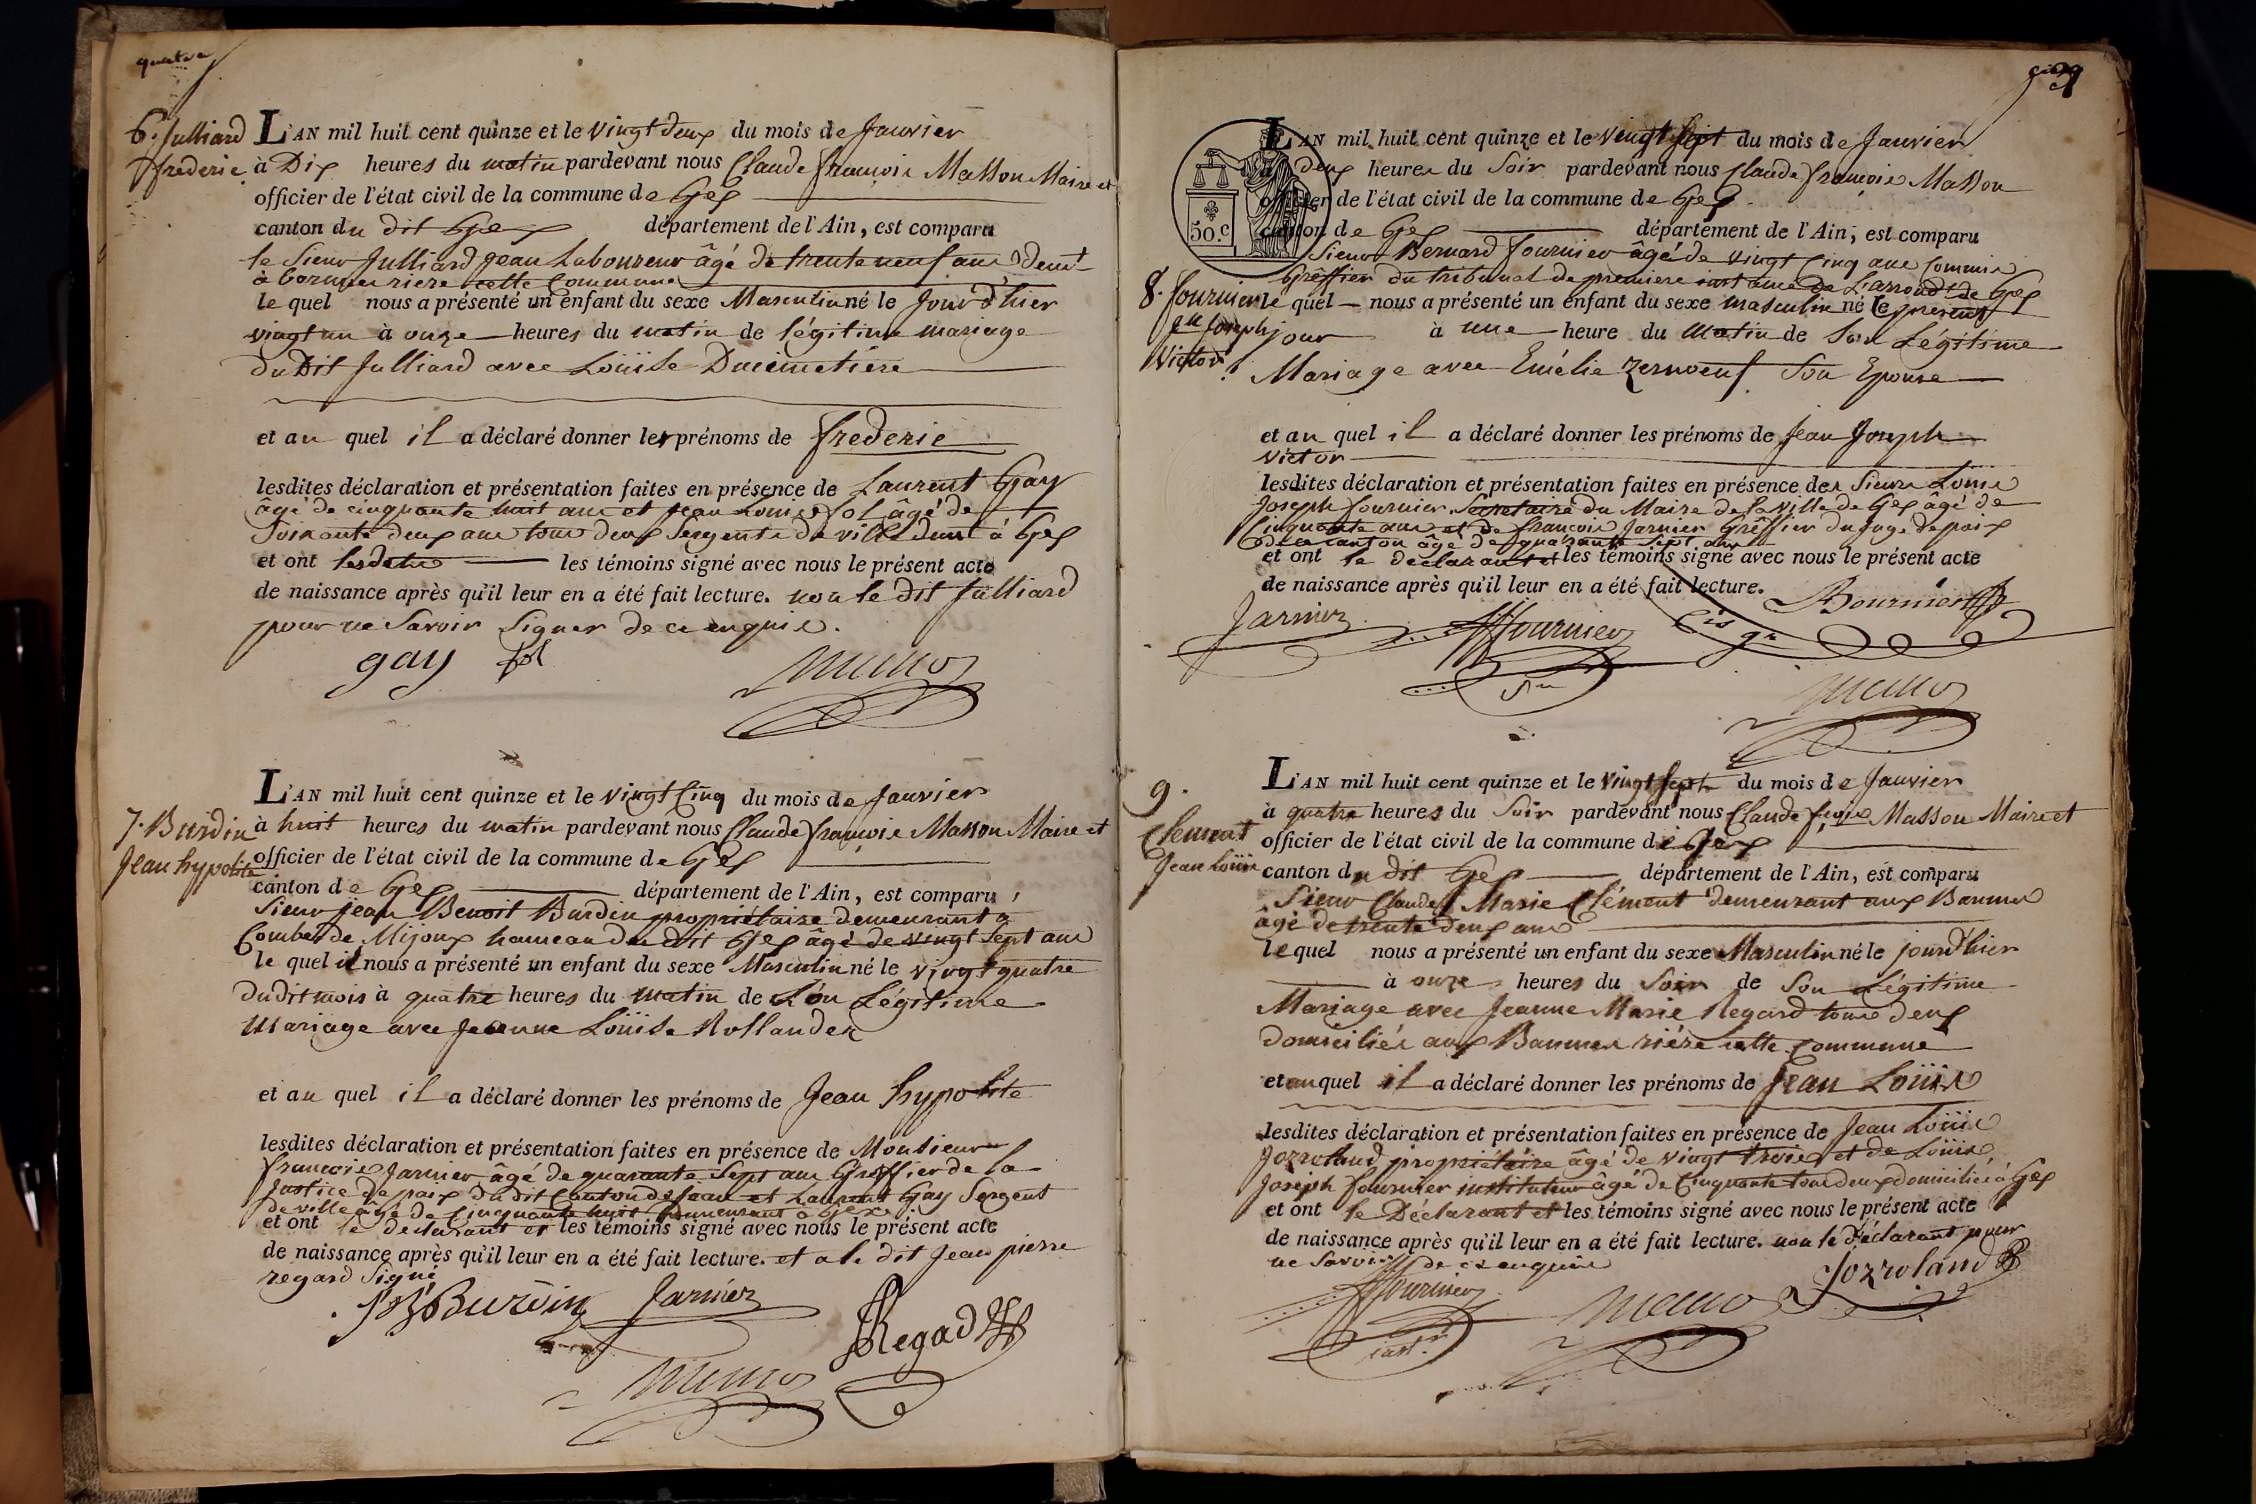 quatre
6. Julliard
frederic
L'AN mil huit cent quinze et le vingt deux du mois de Janvier
à Dix heures du matin pardevant nous Claude françois Masson Maire et
officier de l'état civil de la commune de Gex
canton du dit Gex département de l'Ain, est comparu
le Sieur Julliard Jean Laboureur âgé de trente neuf ans demt
à riere cette Commune
le quel nous a présenté un enfant du sexe Masculin né le Jour d'hier
vingt un à onze heures du matin de légitime mariage
du Dit Julliard avec Loüise Ducimetiere
et au quel il a déclaré donner les prénoms de frederic
lesdites déclaration et présentation faites en présence de Laurent Gay
âgé de cinquante huit ans et Jean Louis fol âgé de
Soixante deux ans tous deux Sergents de ville demt à Gex
et ont lesdits les témoins signé avec nous le présent acte
de naissance après qu'il leur en a été fait lecture. non le dit Julliard
pour ne Savoir Signer de ce enquis.
gay fol
Masson
7. Burdin
Jean hypolite
L'AN mil huit cent quinze et le vingt Cinq du mois de Janvier
à huit heures du matin pardevant nous Claude françois Masson Maire et
officier de l'état civil de la commune de Gex
canton de Gex département de l'Ain, est comparu
Sieur Jean Benoit Burdin propriétaire demeurant a
Combe de Mijoux hameau du dit Gex âgé de vingt Sept ans
le quel il nous a présenté un enfant du sexe Masculin né le vingt quatre
du dit mois à quatre heures du matin de Son Légitime
Mariage avec Jeanne Loüise Rollandez
et au quel il a déclaré donner les prénoms de Jean hypolite
lesdites déclaration et présentation faites en présence de Monsieur
françois Jarnier âgé de quarante Sept ans Greffier de la
Justice de paix du dit Canton de et Laurent Gay Sergent
de ville âgé de Cinquante huit demeurant à Gex
et ont le déclarant et les témoins signé avec nous le présent acte
de naissance après qu'il leur en a été fait lecture. et a le dit Jean pierre
regard Signé
JB Burdin Jarnier
Regad
Masson
L'AN mil huit cent quinze et le vingt Sept du mois de Janvier
à deux heures du Soir pardevant nous Claude françois Masson
officier de l'état civil de la commune de Gex
50.c
canton de Gex département de l'Ain, est comparu
Sieur Bernard fournier âgé de vingt Cinq ans Commis
Gréffier du tribunal de premiere instance de L'arrondt de Gex
8. fournier
Jn Joseph
Victor
le quel nous a présenté un enfant du sexe masculin né le present
jour à une heure du matin de Son Légitime
Mariage avec Emélie Zernoeuf Son Epouse
et au quel il a déclaré donner les prénoms de Jean Joseph
Victor
lesdites déclaration et présentation faites en présence des Sieurs Louis
Joseph fournier Secretaire du Maire de la ville de Gex âgé de
Cinquante ans et de françois Jarnier Gréffier du Juge de paix
de ce canton âgé de quarante Sept ans
et ont le déclarant et les témoins signé avec nous le présent acte
de naissance après qu'il leur en a été fait lecture.
Jarnier fournier Bournier
Cis gr
Masson
9.
Clement
Jean Loüis
L'AN mil huit cent quinze et le vingt Sept du mois de Janvier
à quatre heures du Soir pardevant nous Claude frçois Masson Maire et
officier de l'état civil de la commune de Gex
canton du dit Gex département de l'Ain, est comparu
Sieur Claude Marie Clément demeurant aux Baumes
âgé de trente deux ans
le quel nous a présenté un enfant du sexe Masculin né le jour d'hier
à onze heures du Soir de Son Légitime
Mariage avec Jeanne Marie Regard tous deux
domiciliés aux Baumes riére cette Commune
et au quel il a déclaré donner les prénoms de Jean Loüis
lesdites déclaration et présentation faites en présence de Jean Loüis
Jozroland propriétaire âgé de vingt trois et de Loüis
Joseph fournier instituteur âgé de Cinquante tous deux domiciliés à Gex
et ont le Déclarant et les témoins signé avec nous le présent acte
de naissance après qu'il leur en a été fait lecture. non le Déclarant pour
ne Savoir de ce enquis
fournier
inst.r
Masson Jozroland